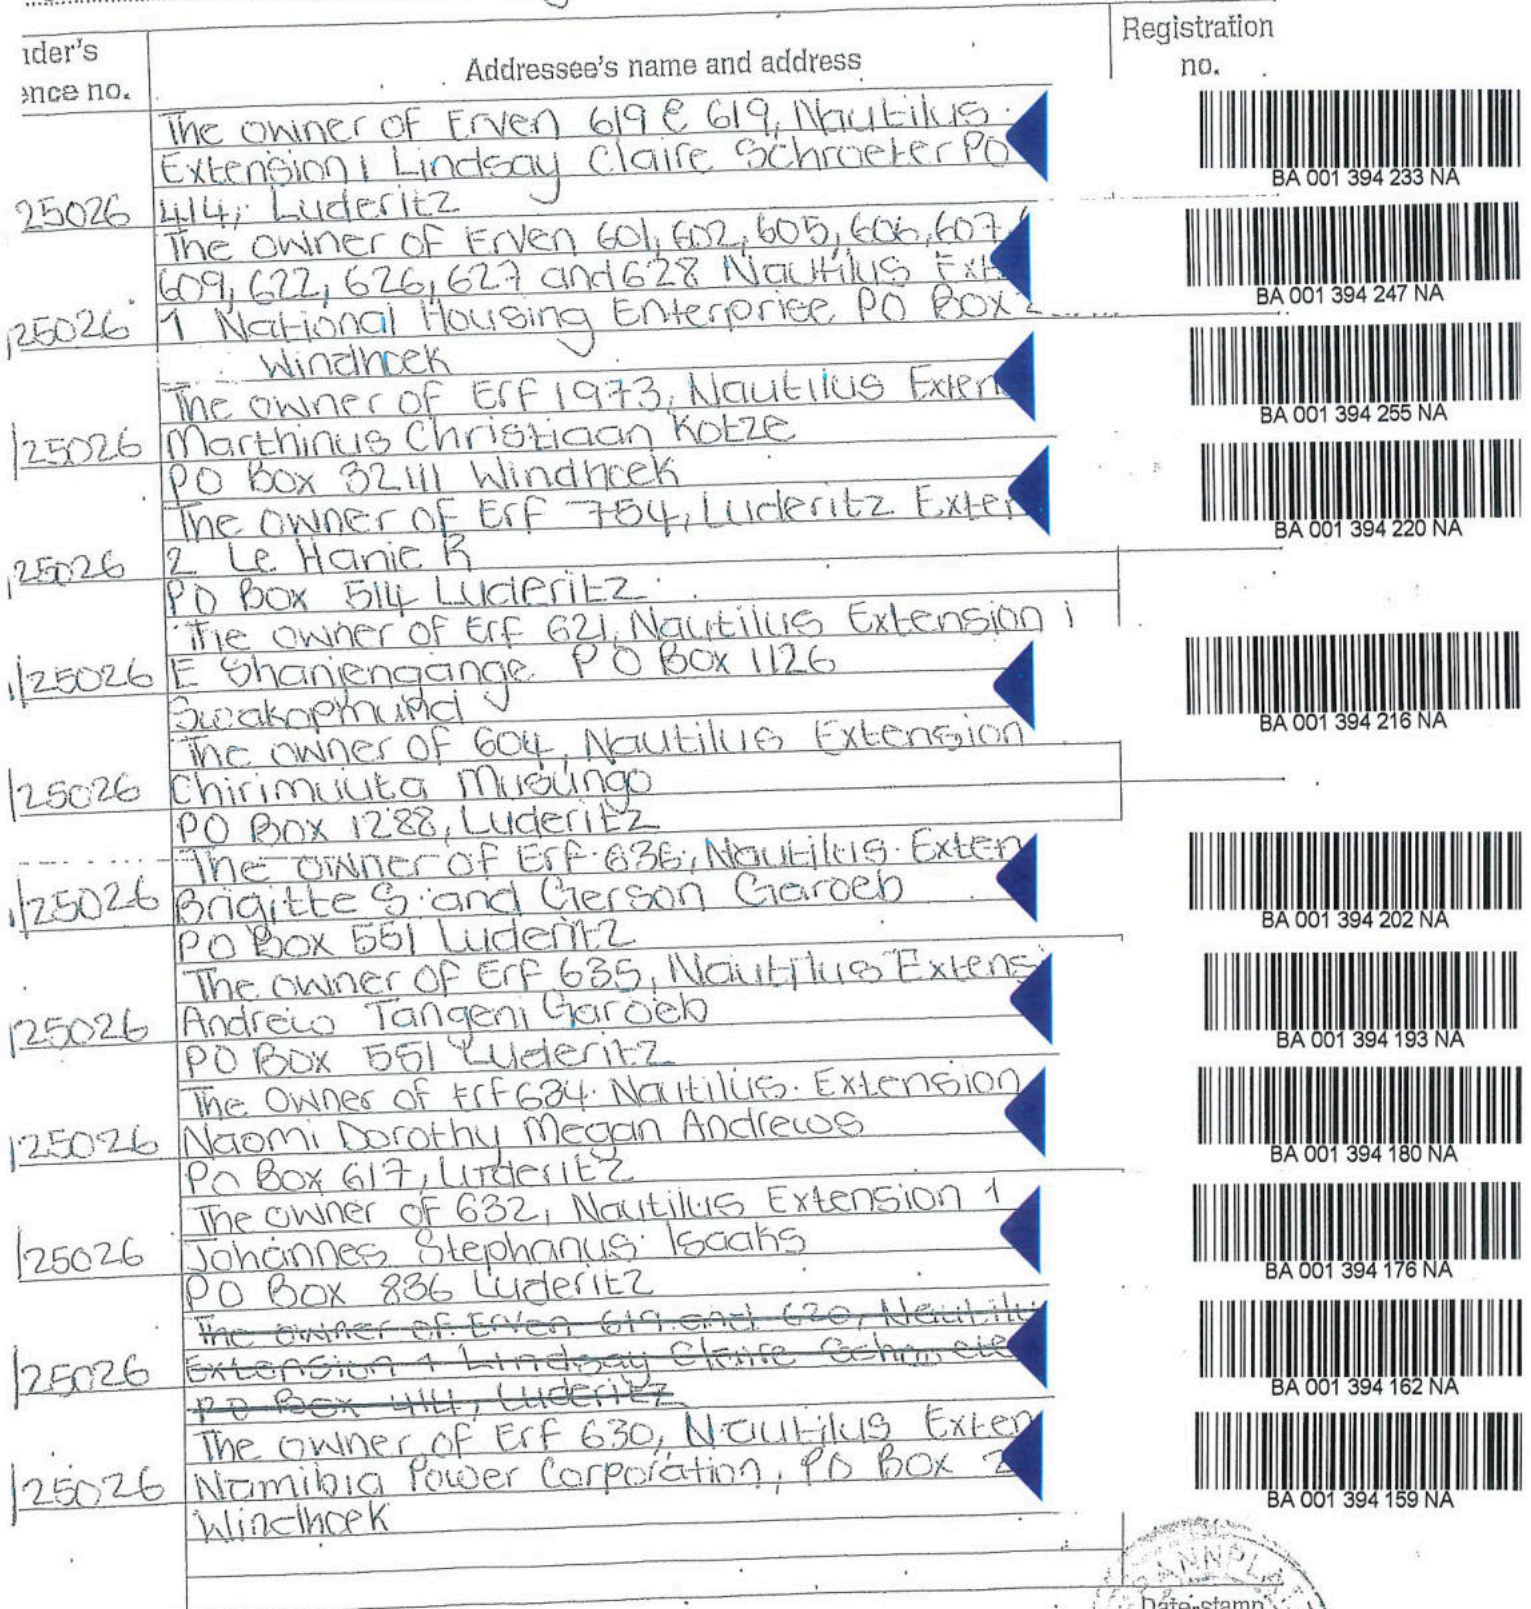 ider's
ence no.
Addressee's name and address
Registration
no.
The owner of Erven 619 & 619, Nautilus
Extension 1 Lindsay Claire Schroeter PO
25026 414, Luderitz
BA 001 394 233 NA
The owner of Erven 601, 602, 605, 606, 607,
609, 622, 626, 627 and 628 Nautilus Ext
25026 1 National Housing Enterprise PO Box 2
Windhoek
BA 001 394 247 NA
The owner of Erf 1973, Nautilus Exten
25026 Marthinus Christiaan Kotze
PO Box 32111 Windhoek
BA 001 394 255 NA
The owner of Erf 754, Luderitz Exten
25026 2 Le Hanie R
PO Box 514 Luderitz
BA 001 394 220 NA
The owner of Erf 621, Nautilus Extension 1
25026 E Shaniengange PO Box 1126
Swakopmund
BA 001 394 216 NA
The owner of 604, Nautilus Extension
25026 Chirimuuta Musungo
PO Box 1288, Luderitz
The owner of Erf 636, Nautilus Exten
25026 Brigitte S and Gerson Garoeb
PO Box 551 Luderitz
BA 001 394 202 NA
The owner of Erf 635, Nautilus Extensi
25026 Andrew Tangeni Garoeb
PO Box 551 Luderitz
BA 001 394 193 NA
The Owner of Erf 634 Nautilus Extension
25026 Naomi Dorothy Megan Andrews
Po Box 617, Luderitz
BA 001 394 180 NA
The owner of 632, Nautilus Extension 1
25026 Johannes Stephanus Isaaks
PO Box 836 Luderitz
BA 001 394 176 NA
The owner of Erven 619 and 620, Nautilu
25026 Extension 1 Lindsay Claire Schroete
PO Box 414, Luderitz
BA 001 394 162 NA
The owner of Erf 630, Nautilus Exten
25026 Namibia Power Corporation, PO Box 2
Windhoek
BA 001 394 159 NA
Date-stamp